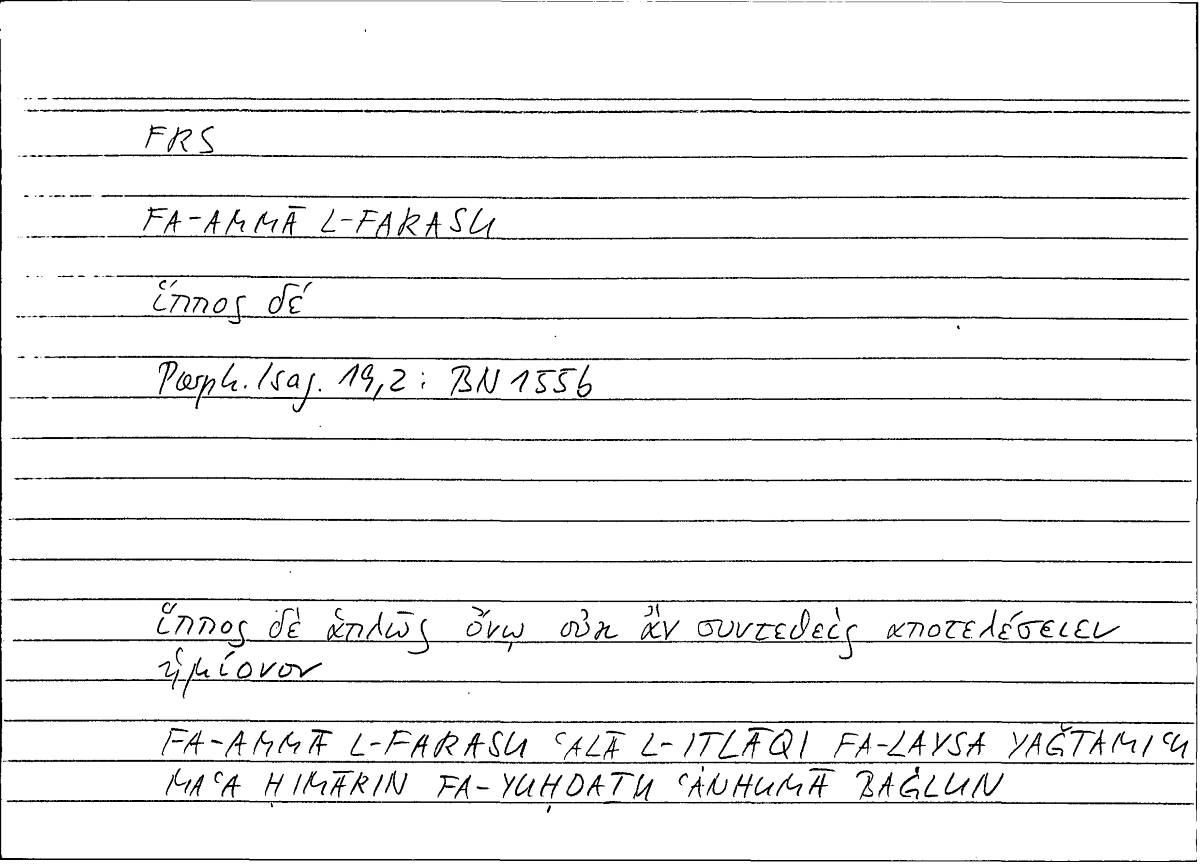 FRS
FA-AMMĀ L-FARASU
ἵππος δέ
Porph. Isag. 19,2: BN 155b
ἵππος δὲ ἁπλῶς ὄνῳ οὐκ ἂν συντεθεὶς αποτελέσειεν
ἡμίονον
FA-AMMĀ L-FARASU ʿALĀ L-ITLĀQI FA-LAYSA YAĞTAMIʿU
MAʿA ḤIMĀRIN FA-YUḤDATU ʿANHUMĀ BAĠLUN